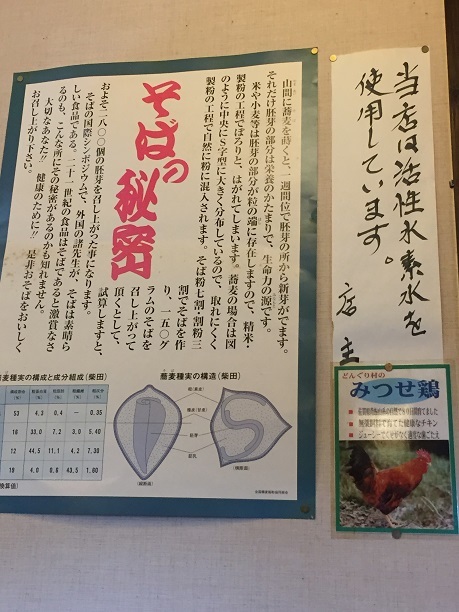 そばの秘密
山間に蕎麦を蒔くと、一週間位で胚芽の所から新芽がでます。
それだけ胚芽の部分は栄養のかたまりで、生命力の源です。
米や小麦等は胚芽の部分が粒の端に存在しますので、精米・
製粉の工程でぽろりと、はがれてしまいます。蕎麦の場合は図
のように中央にS字型に大きく分布しているので、取れにくく
製粉の工程で自然に粉に混入されます。そば粉七割・割粉三
割でそばを作
り、一五〇グ
ラムのそばを
召し上がって
頂くとして、
試算しますと、
およそ二八〇〇個の胚芽を召し上がった事になります。
そばの国際シンポジウムで、外国の諸先生が、そばは素晴ら
しい食品である。二十一世紀の食品はそばであると激賞なさ
るのも、こんな所にその秘密があるのかも知れません。
大切なあなた!! 健康のために!! 是非おそばをおいしく
お召し上がり下さい。
蕎麦種実の構成と成分組成(柴田)
53 4.3 0.4 — 0.35
16 33.0 7.2 3.0 5.40
12 44.5 11.1 4.2 7.30
19 4.0 0.8 43.5 1.80
換算値)
蕎麦種実の構造(柴田)
当店は活性水素水を
使用しています。
店主
どんぐり村の
みつせ鶏